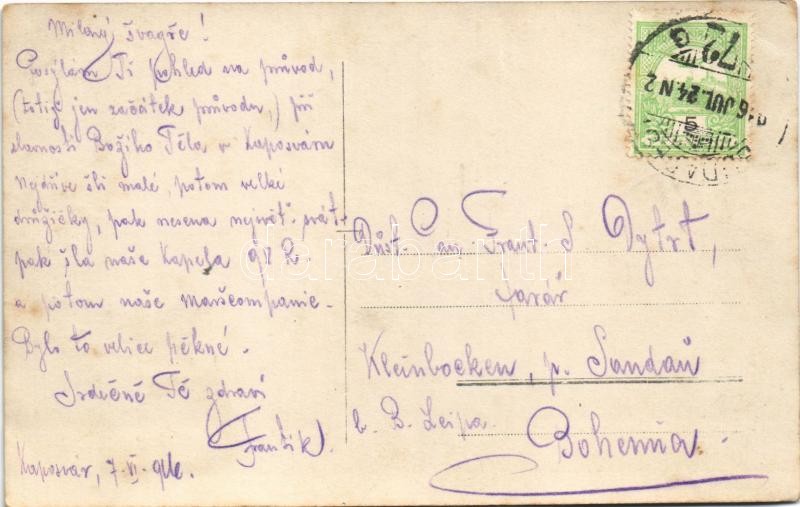 Milený švagře!
Posýlám Tí pohled na průvod,
(totiž jen začátek průvodu,) při
slavnosti Božího Těla v Kaposvám
Nejdříve šli malé, potom velké
družičky, pak nesena největ. svát.
pak šla naše Kapela 91 R.
a potom naše Maršcompanie.
Bylo to velice pěkné.
Srdečně Tě zdraví
Frantík.
Kaposvár, 7. VI. 916.
Důst. Pan Frant. S. Dytrt,
farář
Kleinbocken, p. Sandau
b. B. Leipa.
Bohemia.
916 JUL. 24. N 2
BUDAPEST
72
5
darabanth